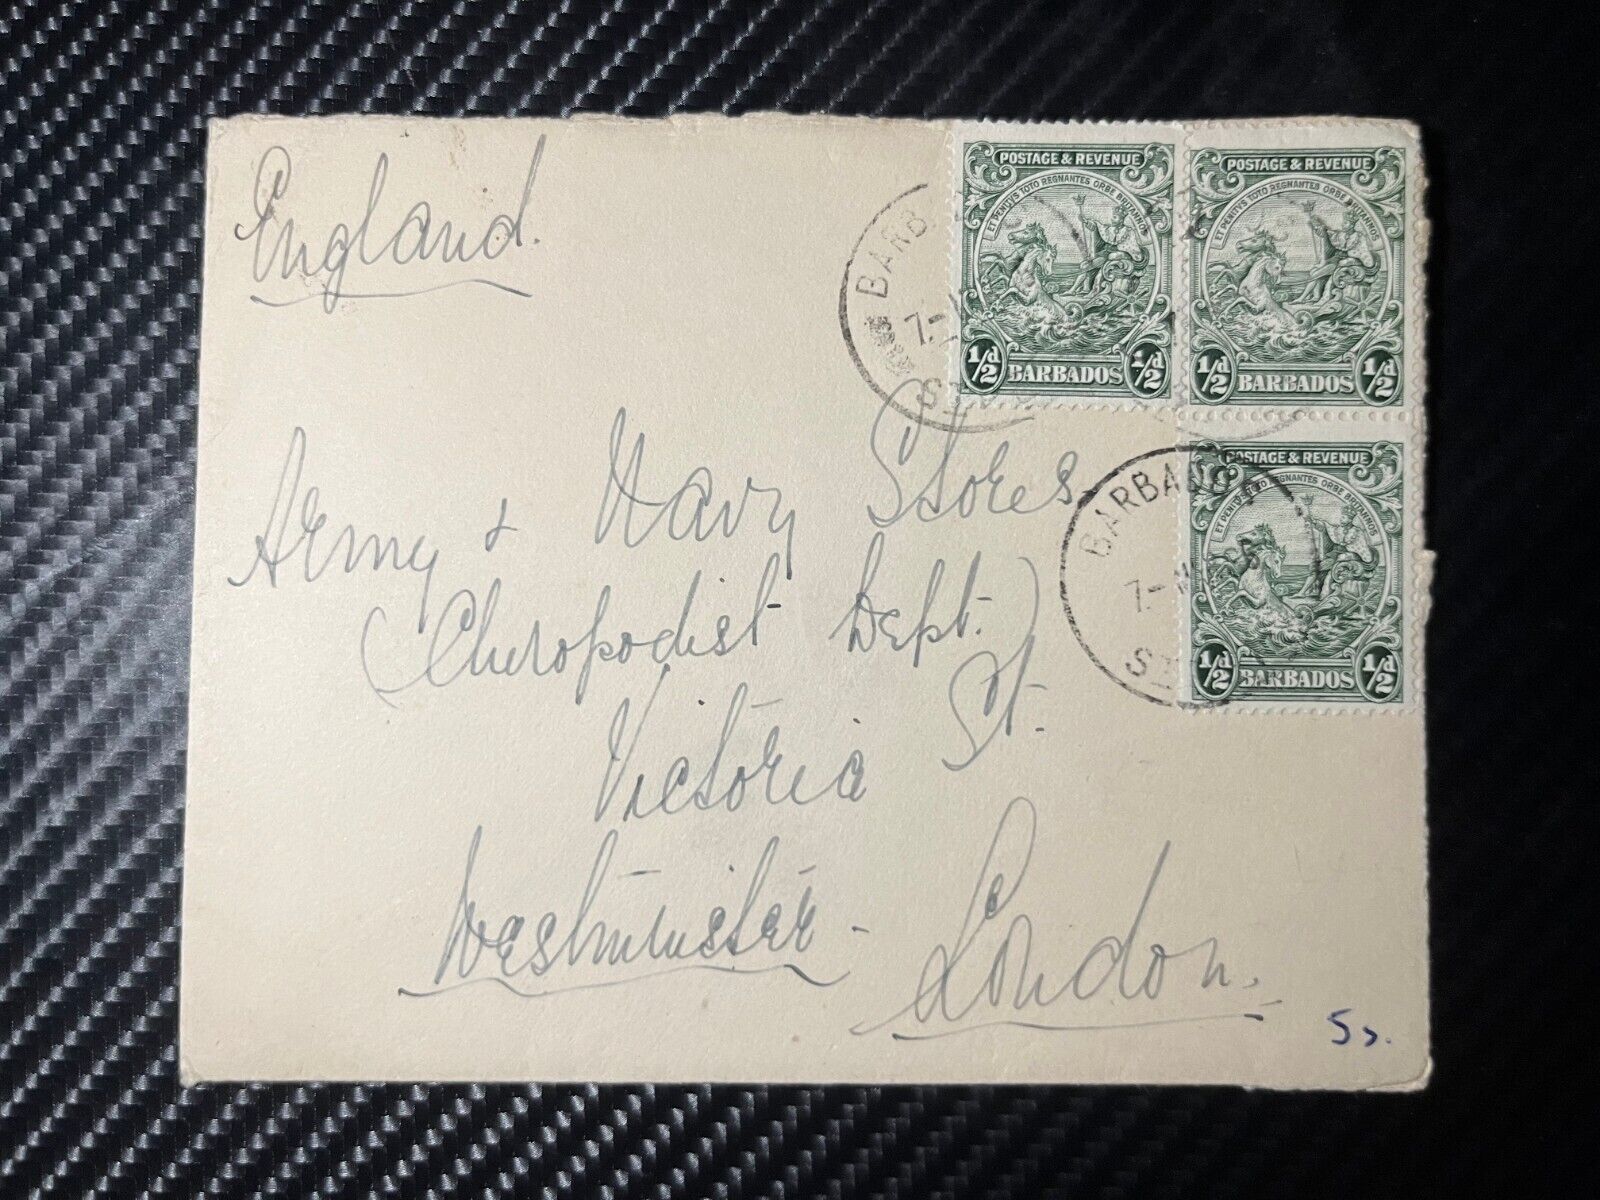 England.
POSTAGE & REVENUE
ET PENITUS TOTO REGNANTES ORBE BRITANNOS
1/2d BARBADOS 1/2d
POSTAGE & REVENUE
ET PENITUS TOTO REGNANTES ORBE BRITANNOS
1/2d BARBADOS 1/2d
POSTAGE & REVENUE
ET PENITUS TOTO REGNANTES ORBE BRITANNOS
1/2d BARBADOS 1/2d
BARB
7-
BARBADOS
7-
Army & Navy Stores
(Chiropodist Dept.)
Victoria St.
Westminster.
London.
5s.